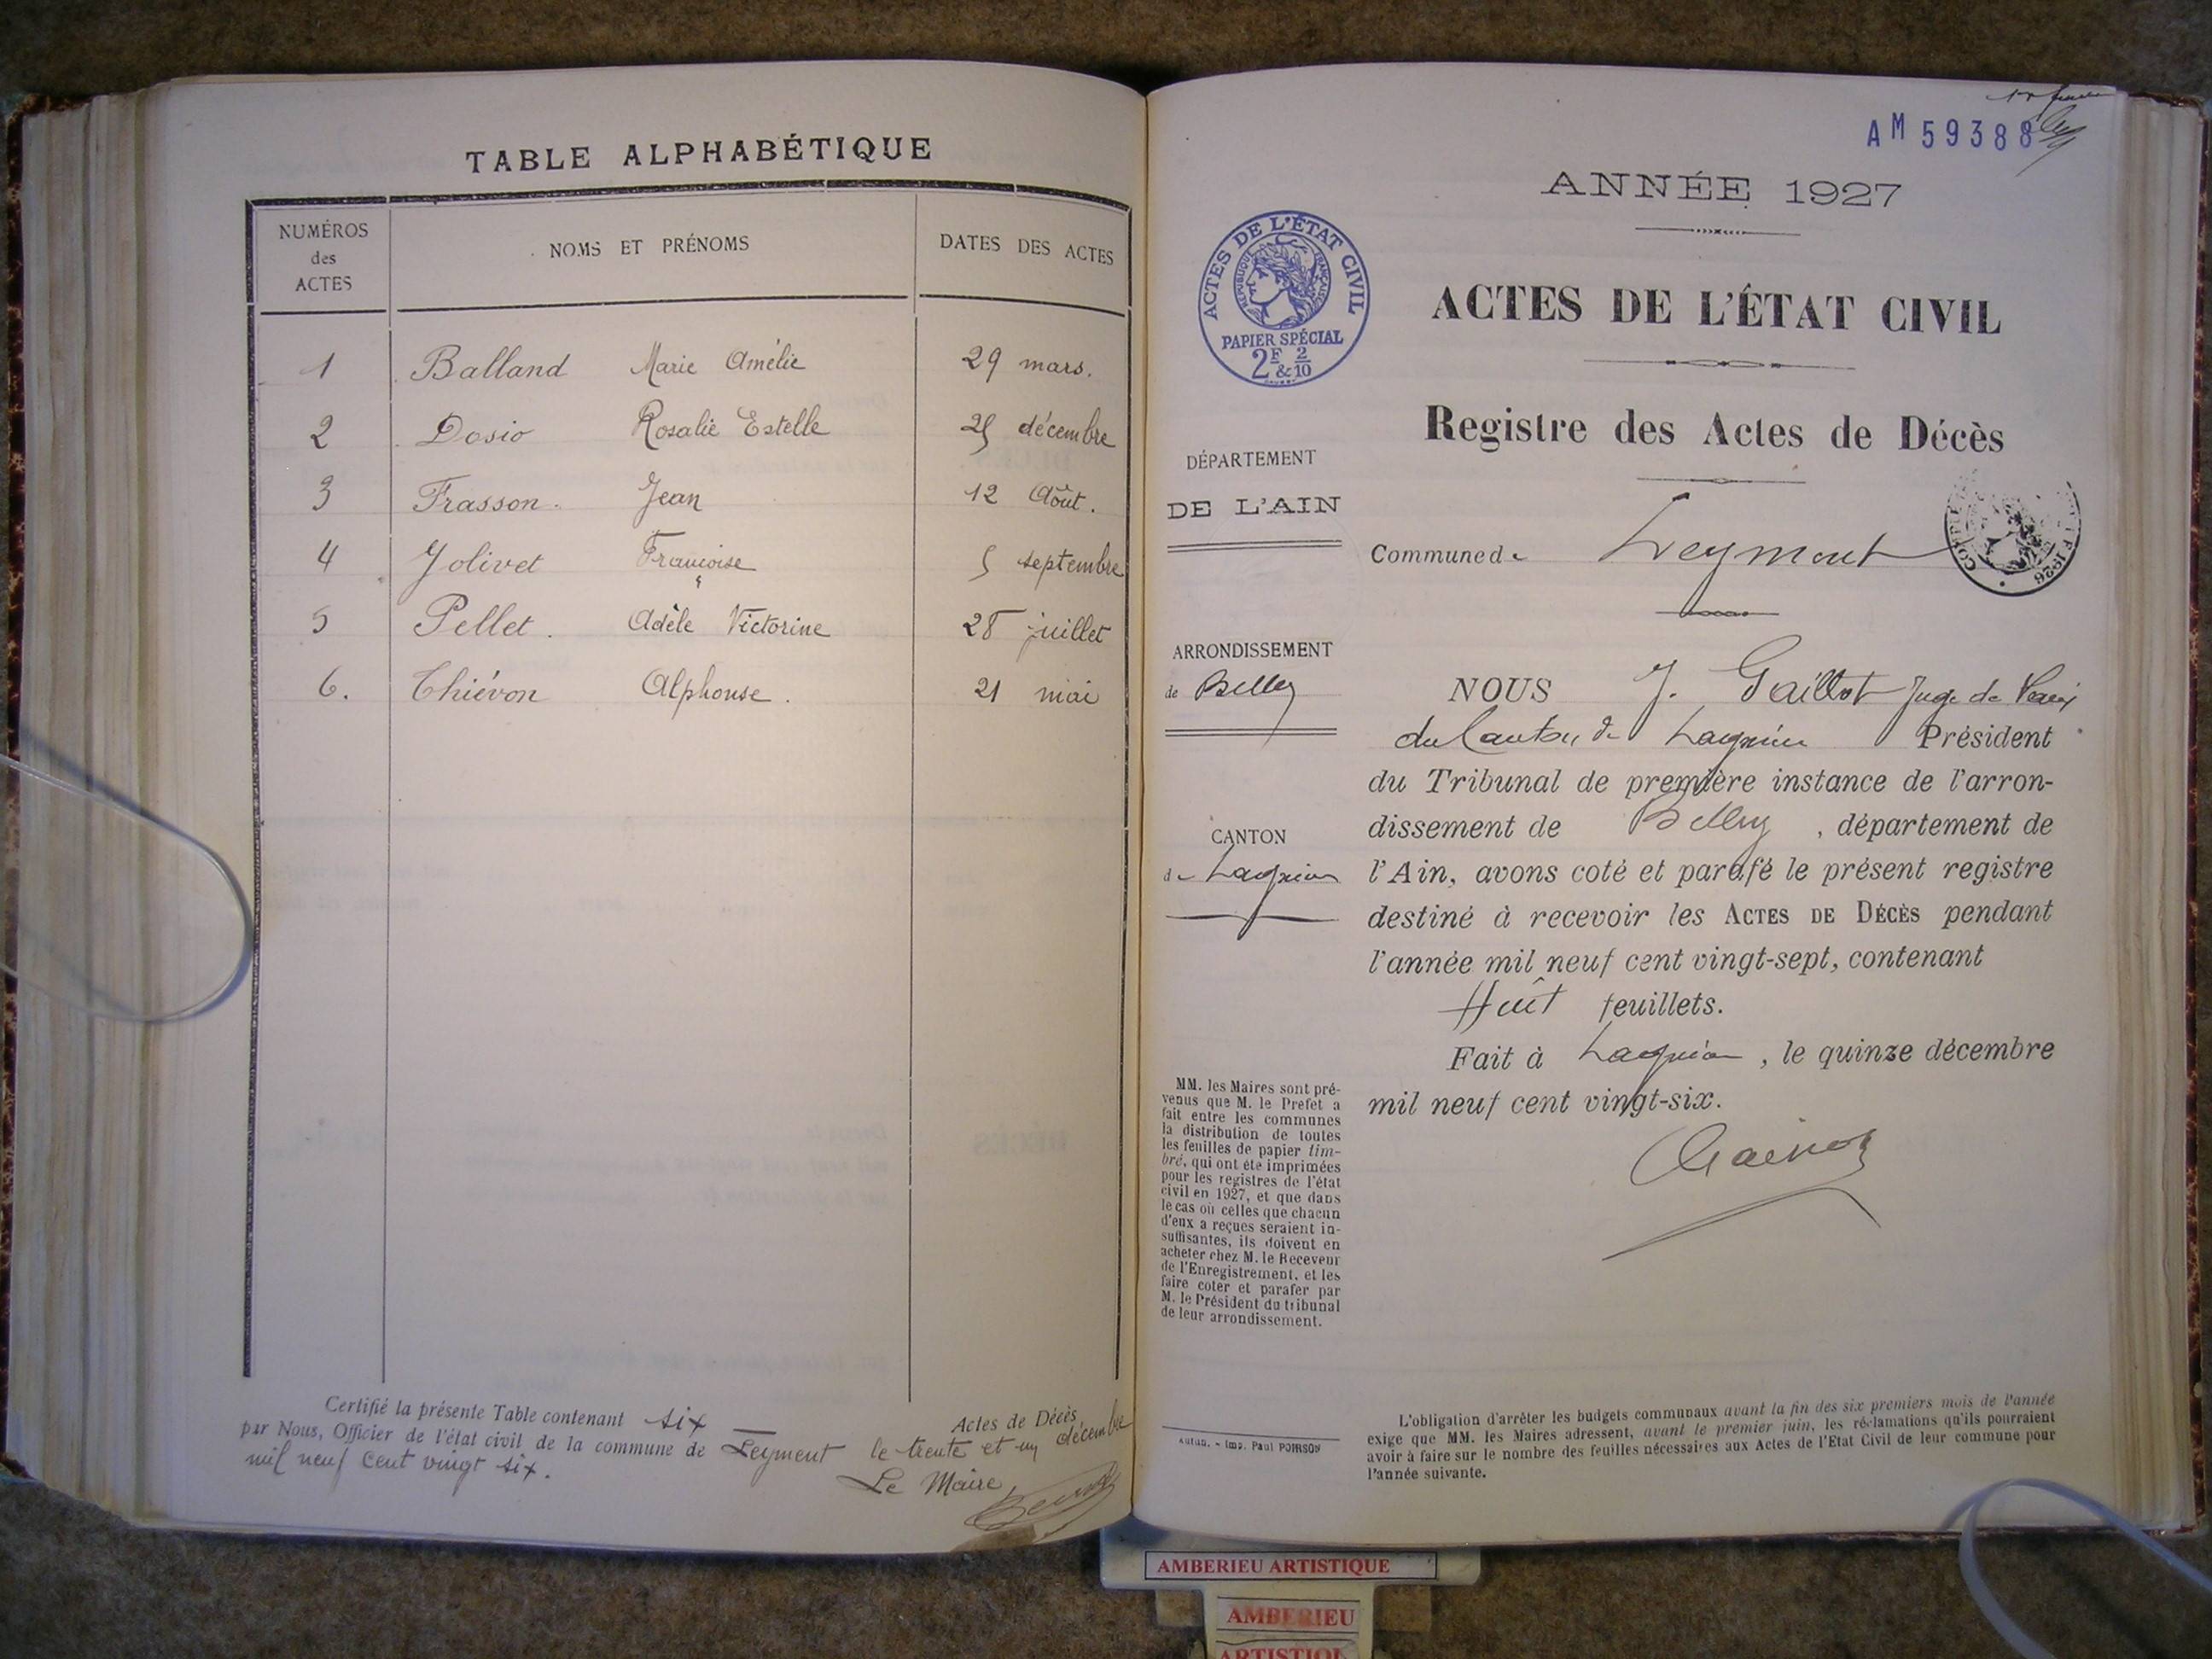 TABLE ALPHABÉTIQUE
NUMÉROS
des
ACTES
NOMS ET PRÉNOMS
DATES DES ACTES
1 Balland Marie Amélie 29 mars.
2 Dosio Rosalie Estelle 25 décembre
3 Frasson. Jean 12 Août.
4 Jolivet Françoise 5 septembre
5 Pellet. Adèle Victorine 28 juillet
6. Thiévon Alphonse. 21 mai
Certifié la présente Table contenant six Actes de Décès,
par Nous, Officier de l'état civil de la commune de Leyment le trente et un décembre
mil neuf cent vingt six.
Le Maire,
AM 59388
ANNÉE 1927
ACTES DE L'ÉTAT CIVIL
RÉPUBLIQUE FRANÇAISE
PAPIER SPÉCIAL
2F & 2/10
ACTES DE L'ÉTAT CIVIL
Registre des Actes de Décès
DÉPARTEMENT
DE L'AIN
Commune de Leyment
ARRONDISSEMENT
de Belley
CANTON
de Lagnieu
NOUS J. Gaillot Juge de Paix
du Canton de Lagnieu Président
du Tribunal de première instance de l'arron-
dissement de Belley, département de
l'Ain, avons coté et parafé le présent registre
destiné à recevoir les ACTES DE DÉCÈS pendant
l'année mil neuf cent vingt-sept, contenant
Huit feuillets.
Fait à Lagnieu, le quinze décembre
mil neuf cent vingt-six.
MM. les Maires sont pré-
venus que M. le Préfet a
fait entre les communes
la distribution de toutes
les feuilles de papier tim-
bré, qui ont été imprimées
pour les registres de l'état
civil en 1927, et que dans
le cas où celles que chacun
d'eux a reçues seraient in-
suffisantes, ils doivent en
acheter chez M. le Receveur
de l'Enregistrement, et les
faire coter et parafer par
M. le Président du tribunal
de leur arrondissement.
Autun. - Imp. Paul POIRSON
L'obligation d'arrêter les budgets communaux avant la fin des six premiers mois de l'année
exige que MM. les Maires adressent, avant le premier juin, les réclamations qu'ils pourraient
avoir à faire sur le nombre des feuilles nécessaires aux Actes de l'Etat Civil de leur commune pour
l'année suivante.
AMBERIEU ARTISTIQUE
AMBERIEU
ARTISTIQU